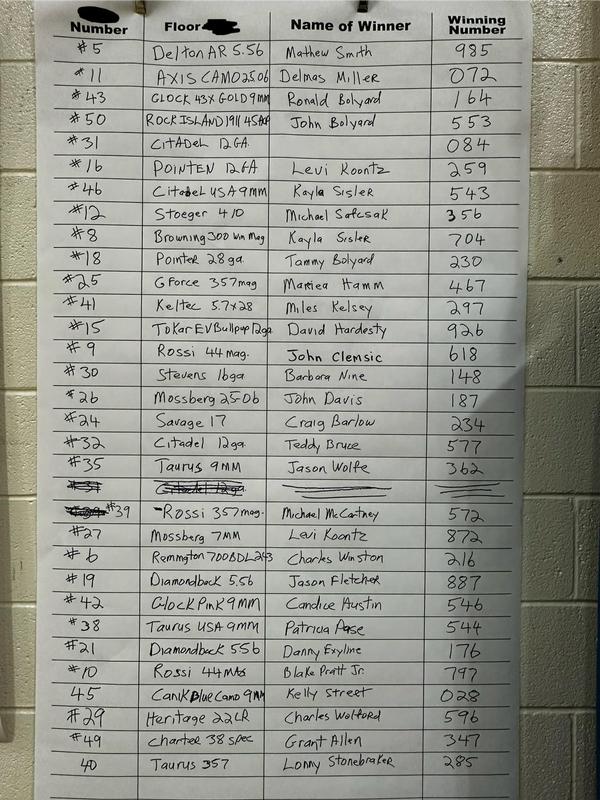 Number Floor Name of Winner Winning Number
#5 Delton AR 5.56 Mathew Smith 985
#11 AXIS CAMO 2506 Delmas Miller 072
#43 GLOCK 43X GOLD 9mm Ronald Bolyard 164
#50 ROCK ISLAND 1911 45ACP John Bolyard 553
#31 CITADEL 12GA 084
#16 POINTEN 12GA Levi Koontz 259
#46 Citadel USA 9MM Kayla Sisler 543
#12 Stoeger 410 Michael Safcsak 356
#8 Browning 300 Win Mag Kayla Sisler 704
#18 Pointer 28ga Tammy Bolyard 230
#25 GForce 357mag Hamm 467
#41 Keltec 5.7x28 Miles Kelsey 297
#15 Tokar EV Bullpup 12ga David Hardesty 926
#9 Rossi 44 mag. John Clemsic 618
#30 Stevens 16ga Barbara Nine 148
#26 Mossberg 25-06 John Davis 187
#24 Savage 17 Craig Barlow 234
#32 Citadel 12ga Teddy Bruce 577
#35 Taurus 9MM Jason Wolfe 362
#31 Citadel 12ga
#39 Rossi 357 mag. Michael McCartney 572
#27 Mossberg 7MM Levi Koontz 872
#6 Remington 700BDL 243 Charles Winston 216
#19 Diamondback 5.56 Jason Fletcher 887
#42 Glock Pink 9MM Candice Austin 546
#38 Taurus USA 9MM Patricia 544
#21 Diamondback 556 Danny Exyline 176
#10 Rossi 44 Blake Pratt Jr. 797
45 Canik Blue Camo 9MM Kelly Street 028
#29 Heritage 22LR Charles Wolford 596
#49 Charter 38 spec Grant Allen 347
40 Taurus 357 Lonny Stonebraker 285